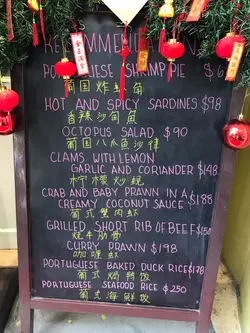 RECOMMENDATION
PORTUGUESE SHRIMP PIE $6
葡国炸虾角
HOT AND SPICY SARDINES $98
香辣沙甸魚
OCTOPUS SALAD $90
葡国八爪魚沙律
CLAMS WITH LEMON
GARLIC AND CORIANDER $148
柠檬炒蜆
CRAB AND BABY PRAWN IN A
CREAMY COCONUT SAUCE $188
葡式蟹肉虾
GRILLED SHORT RIB OF BEEF $150
烧牛肋骨
CURRY PRAWN $198
咖喱虾
PORTUGUESE BAKED DUCK RICE $178
葡式鸭飯
PORTUGUESE SEAFOOD RICE $250
葡式海鮮飯